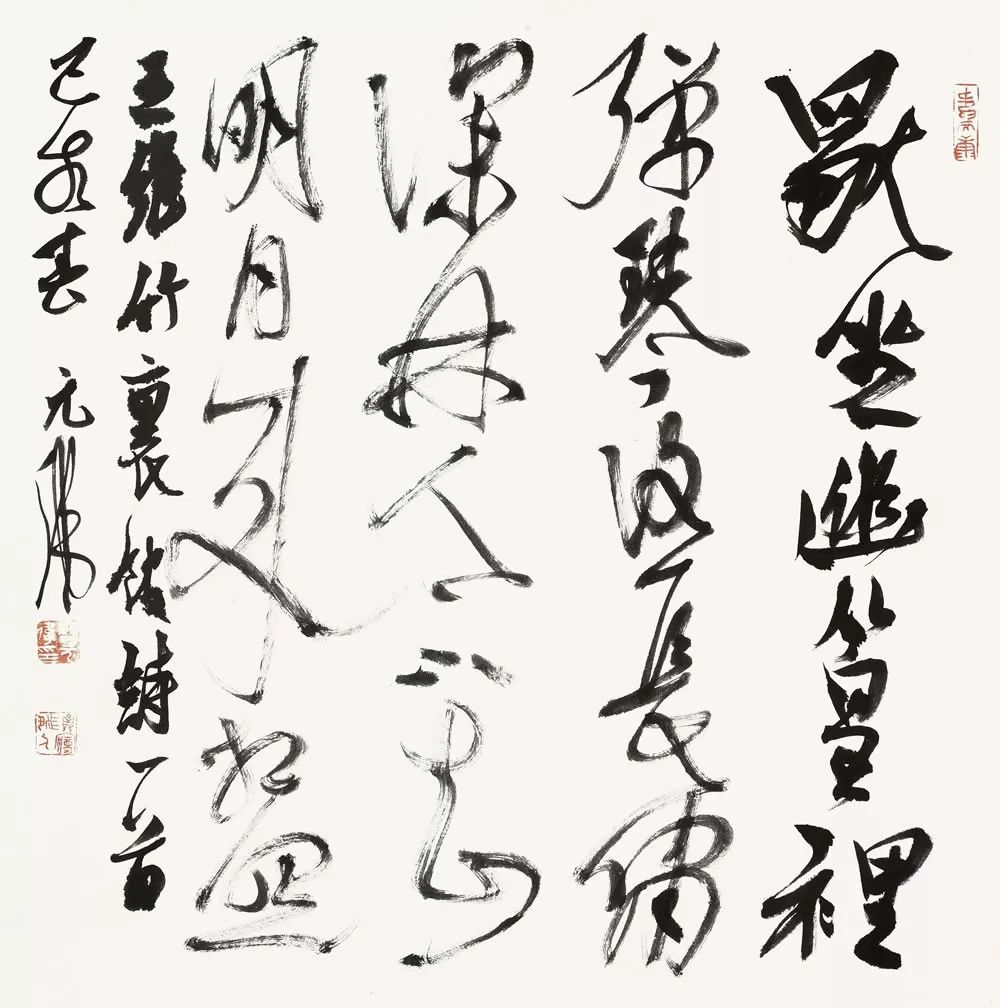 獨坐幽篁裡
彈琴復長嘯
深林人不知
明月來相照
王維竹裏館詩一首
己亥春 元